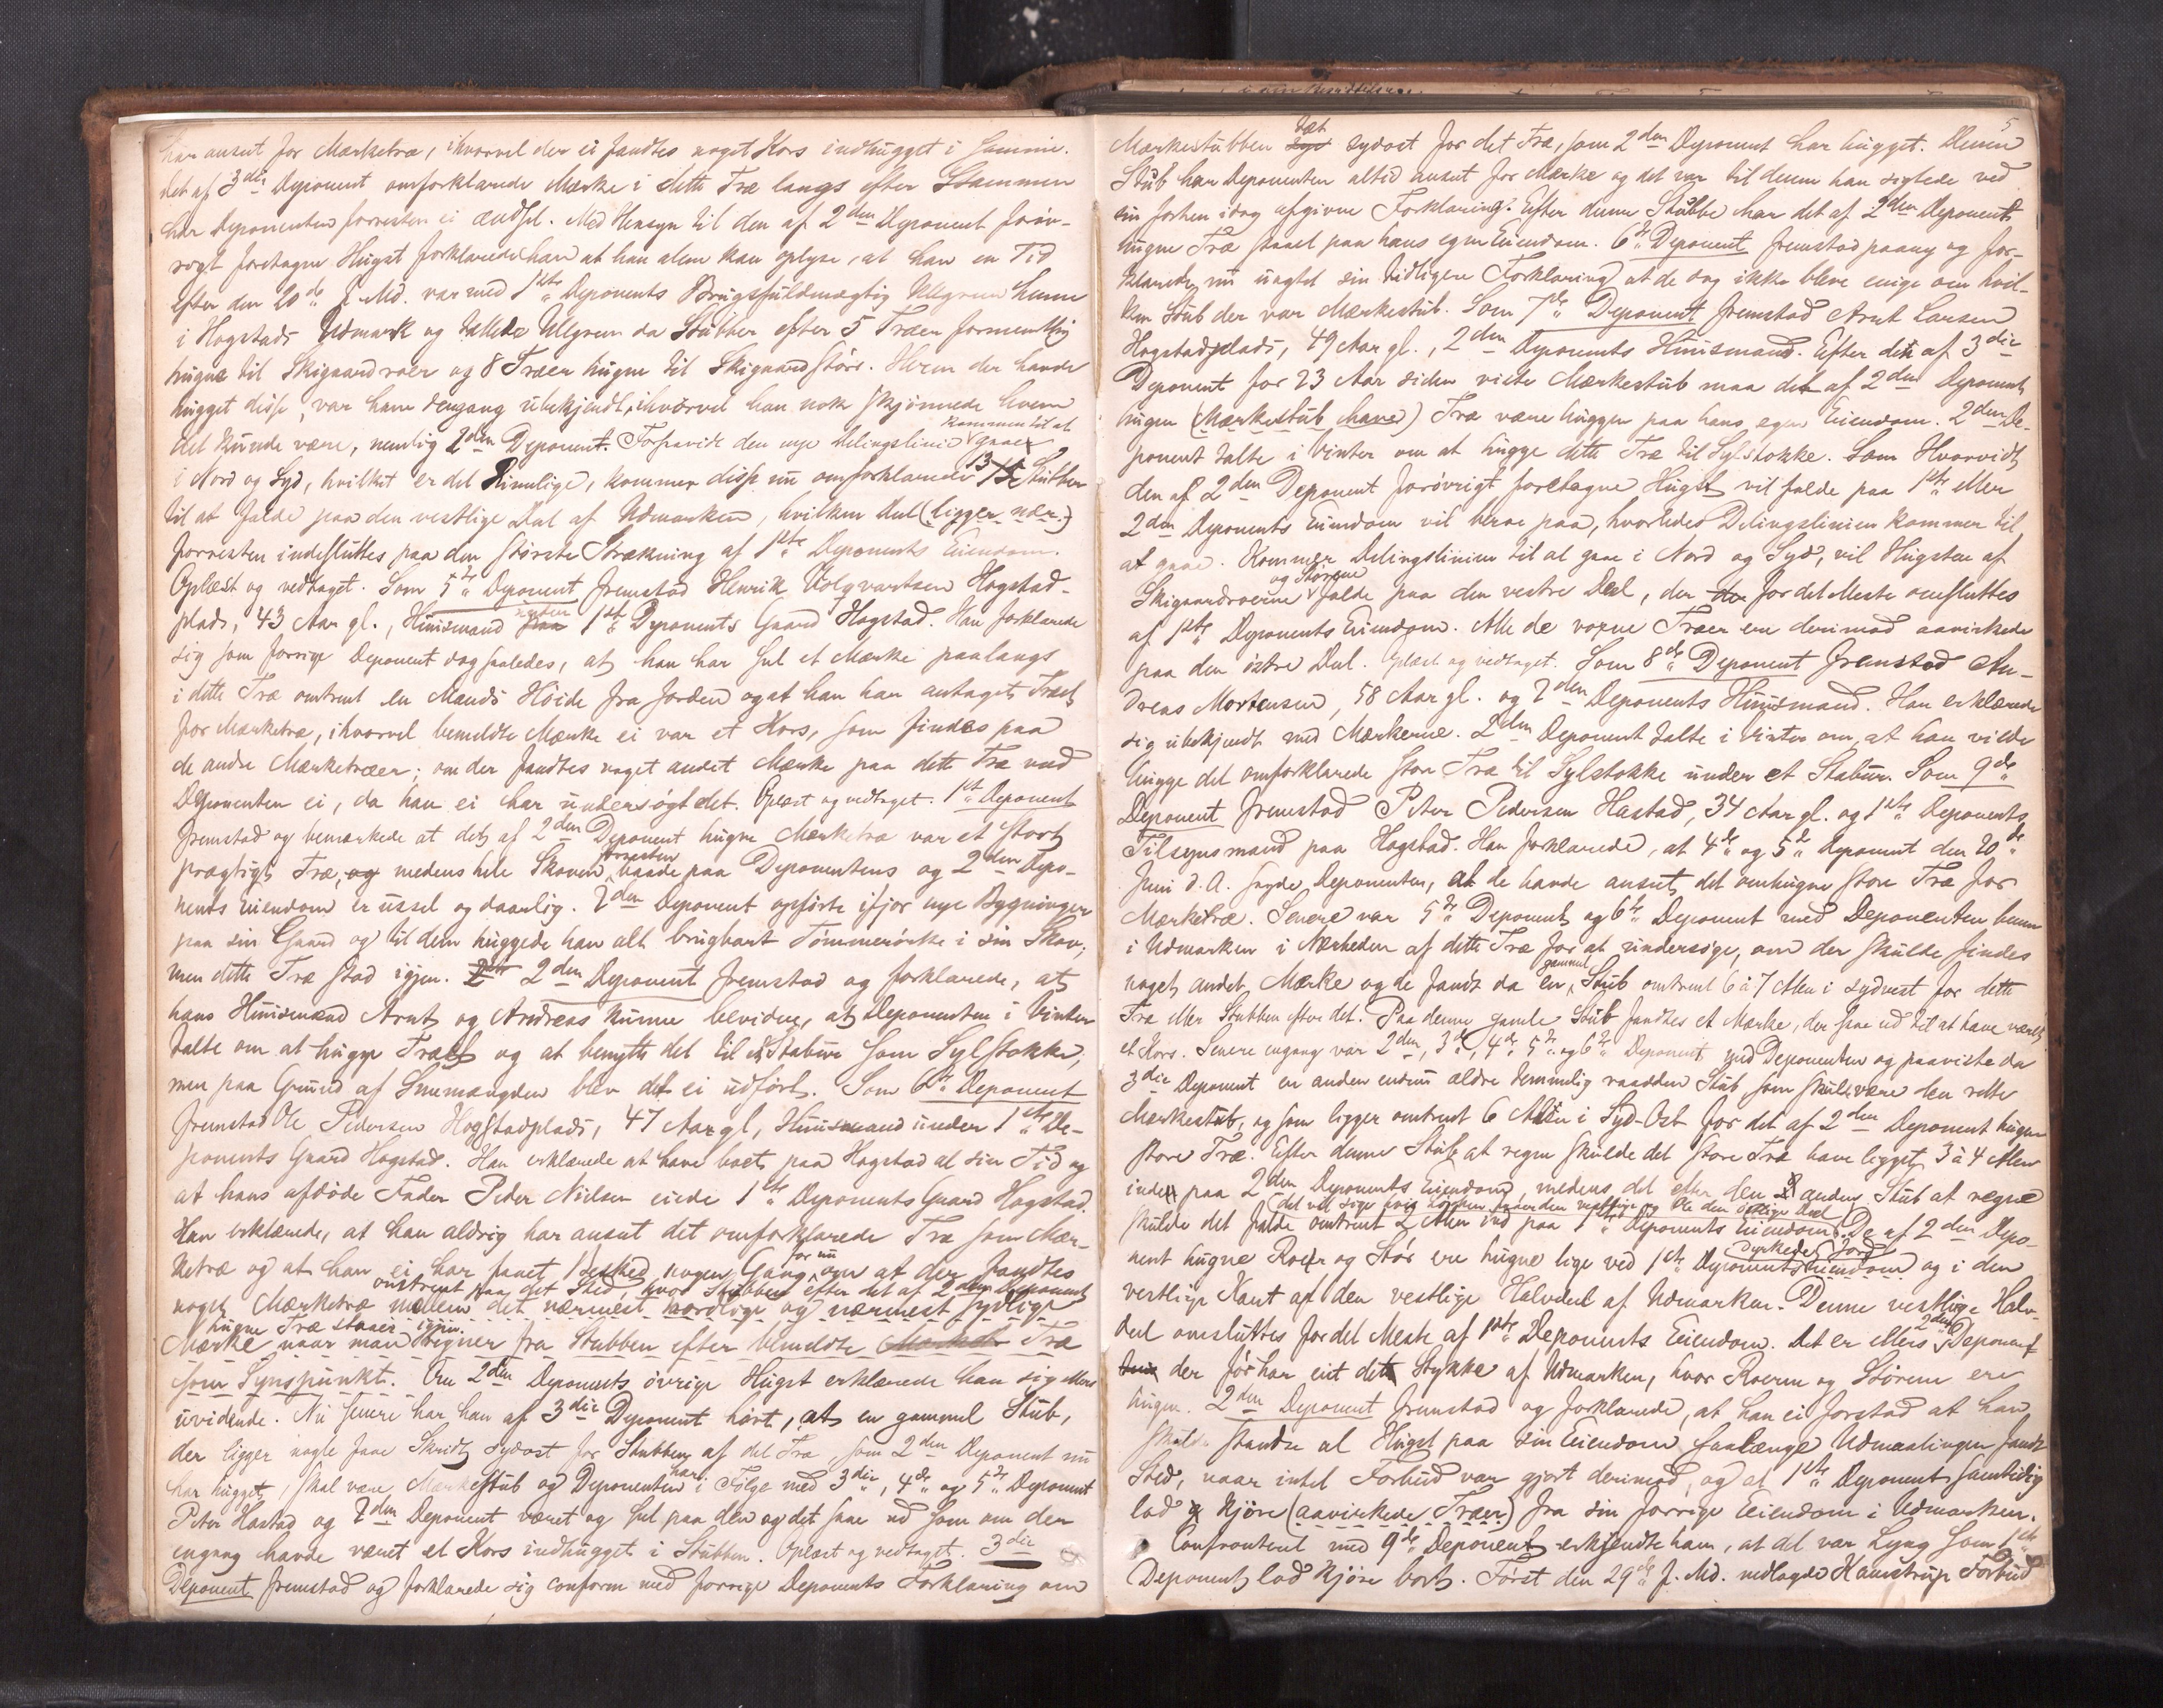 har anseet for Mærketræ, ihvorvel der ei fandtes noget Kors indhugget i samme.
Det af 3die Deponent omforklarede Mærke i dette Træ langs efter Stammen
har Deponenten forresten ei ændset. Med Hensyn til den af 2den Deponent forøv-
rigt foretagne Hugst forklarede han at han alene kan oplyse, at han en Tid
efter den 20de f. Md. var med 1ste Deponents Brugsfuldmægtig Ullgreen henne
i Hogstads Udmark og tallede Ullgreen da Stubber efter 5 Træer formentlig
hugne til Skigaardroer og 8 Træer hugne til Skigaardstør. Hvem der havde
hugget disse, var ham dengang ubekjendt, ihvorvel han nok skjønnede hvem
det kunde være, nemlig 2den Deponent. Forsaavidt den nye Delingslinie kommer til at gaae
i Nord og Syd, hvilket er det Rimelige, kommer disse nu omforklarede 13 Stubber
til at falde paa den vestlige Deel af Udmarken, hvilken Deel (ligger nær.)
forresten indesluttes paa den største Strækning af 1ste Deponents Eiendom.
Oplæst og vedtaget. Som 5te Deponent fremstod Henrik Volqvartsen Hogstad-
plads, 43 Aar gl., Huusmand under 1ste Deponents Gaard Hogstad. Han forklarede
sig som forrige Deponent dog saaledes, at han har seet et Mærke paalangs
i dette Træ omtrent en Mands Høide fra Jorden og at han har antaget Træet
for Mærketræ, ihvorvel bemeldte Mærke ei var et Kors, som findes paa
de andre Mærketræer; om der fandtes noget andet Mærke paa dette Træ veed
Deponenten ei, da han ei har undersøgt det. Oplæst og vedtaget. 1ste Deponent
fremstod og bemærkede at det af 2den Deponent hugne Mærketræ var et stort
prægtigt Træ, og medens hele Skoven forresten baade paa Deponentens og 2den Depo-
nents Eiendom er ussel og daarlig. 2den Deponent opførte ifjor nye Bygninger
paa sin Gaard og til dem huggede han alt brugbart Tømmervirke i sin Skov;
men dette Træ stod igjen. 2den Deponent fremstod og forklarede, at
hans Huusmænd Arnt og Andreas kunne bevidne, at Deponenten i Vinter
talte om at hugge Træet og at benytte det til et Stabur som Sylstokke;
men paa Grund af Sneemængden blev det ei udført. Som 6te Deponent
fremstod Ole Pedersen Hogstadplads, 47 Aar gl, Huusmand under 1ste De-
ponents Gaard Hogstad. Han erklærede at have boet paa Hogstad al sin Tid og
at hans afdøde Fader Peder Nielsen eiede 1ste Deponents Gaard Hogstad.
Han erklærede, at han aldrig har anseet det omforklarede Træ som Mær-
ketræ og at han ei har faaet Besked nogen Gang før nu om at der fandtes
noget Mærketræ omtrent paa det Sted, hvor Stubben efter det af 2den Deponent
mellem det nærmest nordlige og nærmest sydlige
hugne Træ staaer igjen.
Mærke naar man regner fra Stubben efter bemeldte Træ
som Synspunkt. Om 2den Deponents øvrige Hugst erklærede han sig ellers
uvidende. Nu senere har han af 3die Deponent hørt, at en gammel Stub,
der ligger nogle faae Skridt sydost for Stubben af det Træ som 2den Deponent nu
har hugget, skal være Mærkestub og Deponenten har i Følge med 3die, 4de og 5te Deponent
Peter Hastad og 2den Deponent været og seet paa den og det saae ud som om der
engang havde været et Kors indhugget i Stubben. Oplæst og vedtaget. 3die
Deponent fremstod og forklarede sig conform med forrige Deponents Forklaring om
5
Mærkestubben tæt sydost for det Træ, som 2den Deponent har hugget. Denne
Stub har Deponenten altid anseet for Mærke og det var til denne han sigtede ved
sin forhen idag afgivne Forklaring. Efter denne Stubbe har det af 2den Deponent
hugne Træ staaet paa hans egen Eiendom. 6te Deponent fremstod paany og for-
klarede nu uagtet sin tidligere Forklaring at de dog ikke bleve enige om hvil-
ken Stub der var Mærkestub. Som 7de Deponent fremstod Arnt Larsen
Hogstadplads, 49 Aar gl., 2den Deponents Huusmand. Efter den af 3die
Deponent for 23 Aar siden viste Mærkestub maa det af 2den Deponent
hugne (Mærkestub have) Træ være hugget paa hans egen Eiendom. 2den De-
ponent talte i Vinter om at hugge dette Træ til Sylstokke. Som Hvorvidt
den af 2den Deponent forøvrigt foretagne Hugst vil falde paa 1ste eller
2den Deponents Eiendom vil beroe paa, hvorledes Delingslinien kommer til
at gaae. Kommer Delingslinien til at gaae i Nord og Syd, vil Hugsten af
Skigaardroerne og Størene falde paa den vestre Deel, der for det Meste omsluttes
af 1ste Deponents Eiendom. Alle de voxne Træer ere derimod aavirkede
paa den østre Deel. Oplæst og vedtaget. Som 8de Deponent fremstod An-
dreas Mortensen, 58 Aar gl. og 2den Deponents Huusmand. Han erklærede
sig ubekjendt med Mærkerne. 2den Deponent talte i Vinter om, at han vilde
hugge det omforklarede store Træ til Sylstokke under et Stabur. Som 9de
Deponent fremstod Peter Pedersen Hastad, 34 Aar gl. og 1ste Deponents
Tilsynsmand paa Hogstad. Han forklarede, at 4de og 5te Deponent den 20de
Juni d. A. sagde Deponenten, at de havde anseet det omhugne store Træ for
Mærketræ. Senere var 5te Deponent og 6te Deponent med Deponenten henne
i Udmarken i Nærheden af dette Træ for at undersøge, om der skulde findes
noget andet Mærke og de fandt da en gammel Stub omtrent 6 à 7 Alen i sydvest for dette
Træ eller Stubben efter det. Paa denne gamle Stub fandtes et Mærke, der saae ud til at have været
et Kors. Senere engang var 2den, 3die, 4de, 5te og 6te Deponent med Deponenten og paaviste da
3die Deponent en anden endnu ældre temmelig raadden Stub, som skulde være den rette
Mærkestub, og som ligger omtrent 6 Alen i Syd-Ost for det af 2den Deponent hugne
store Træ. Efter denne Stub at regne skulde det store Træ have ligget 3 à 4 Alen
inde paa 2den Deponents Eiendom, medens det efter den anden Stub at regne
(det vil sige hvis faaer den vestlige og Ole den østlige Deel
skulde det falde omtrent 2 Alen ind paa 1ste Deponents Eiendom. De af 2den Depo-
nent hugne Roer og Stør ere hugne lige ved 1ste Deponents dyrkede Jord og i den
vestlige Kant af den vestlige Halvdeel af Udmarken. Denne vestlige Halv-
deel omsluttes for det Meste af 1ste Deponents Eiendom. Det er ellers 2den Deponent
der før har eiet dette Stykke af Udmarken, hvor Roerne og Størene ere
hugne. 2den Deponent fremstod og forklarede, at han ei forstod at han
skulde standse al Hugst paa sin Eiendom saalænge Udmaalingen fandt
Sted, naar intet Forbud var gjort derimod, og at 1ste Deponent samtidig
lod kjøre (aavirkede Træer) fra sin forrige Eiendom i Udmarken.
Confronteret med 9de Deponent erkjendte ham, at det var Lyng som 1ste
Deponent lod kjøre bort. Først den 29de f. Md. nedlagde Hamstrup Forbud